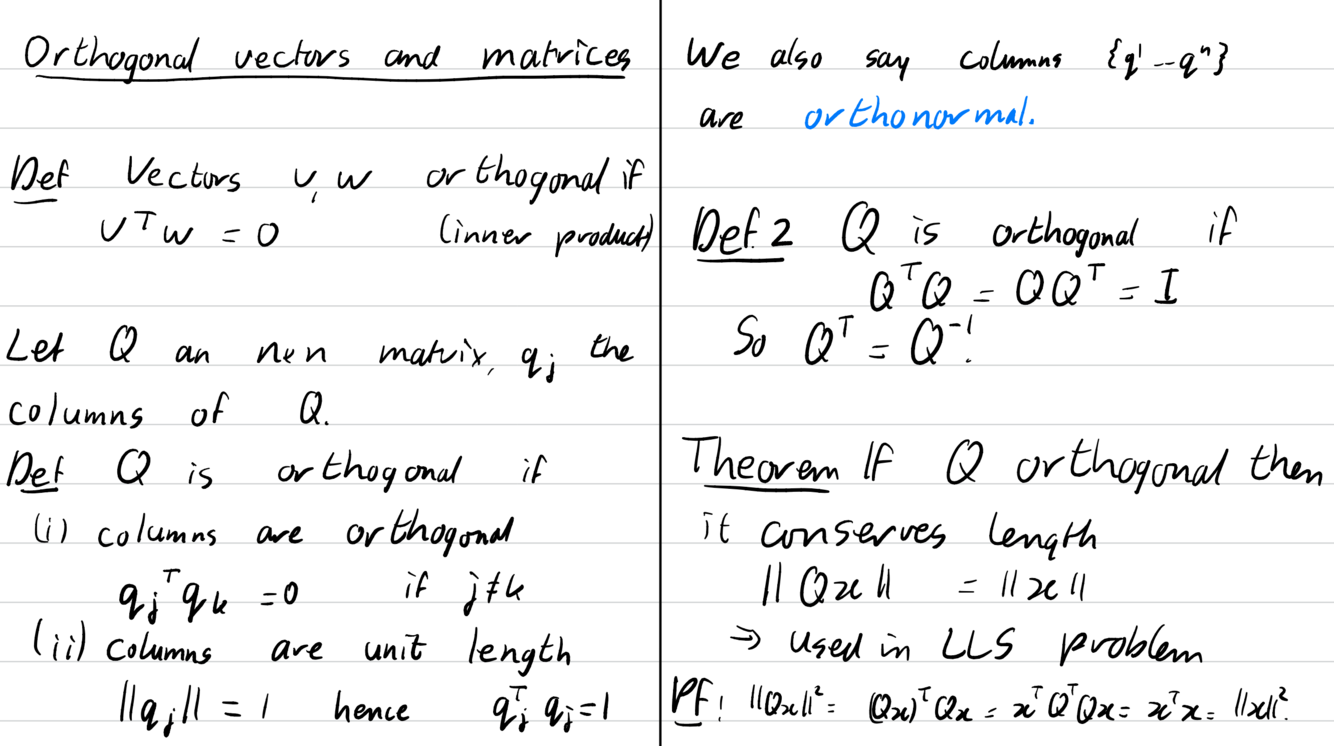 Orthogonal vectors and matrices
Def Vectors v, w orthogonal if
vᵀw = 0 (inner product)
Let Q an n×n matrix, qⱼ the
columns of Q.
Def Q is orthogonal if
(i) columns are orthogonal
qⱼᵀqₖ = 0 if j≠k
(ii) columns are unit length
||qⱼ|| = 1 hence qⱼᵀqⱼ = 1
We also say columns {q¹ -- qⁿ}
are orthonormal.
Def. 2 Q is orthogonal if
QᵀQ = QQᵀ = I
So Qᵀ = Q⁻¹!
Theorem If Q orthogonal then
it conserves length
||Qx|| = ||x||
⇒ used in LLS problem
Pf: ||Qx||² = (Qx)ᵀQx = xᵀQᵀQx = xᵀx = ||x||².